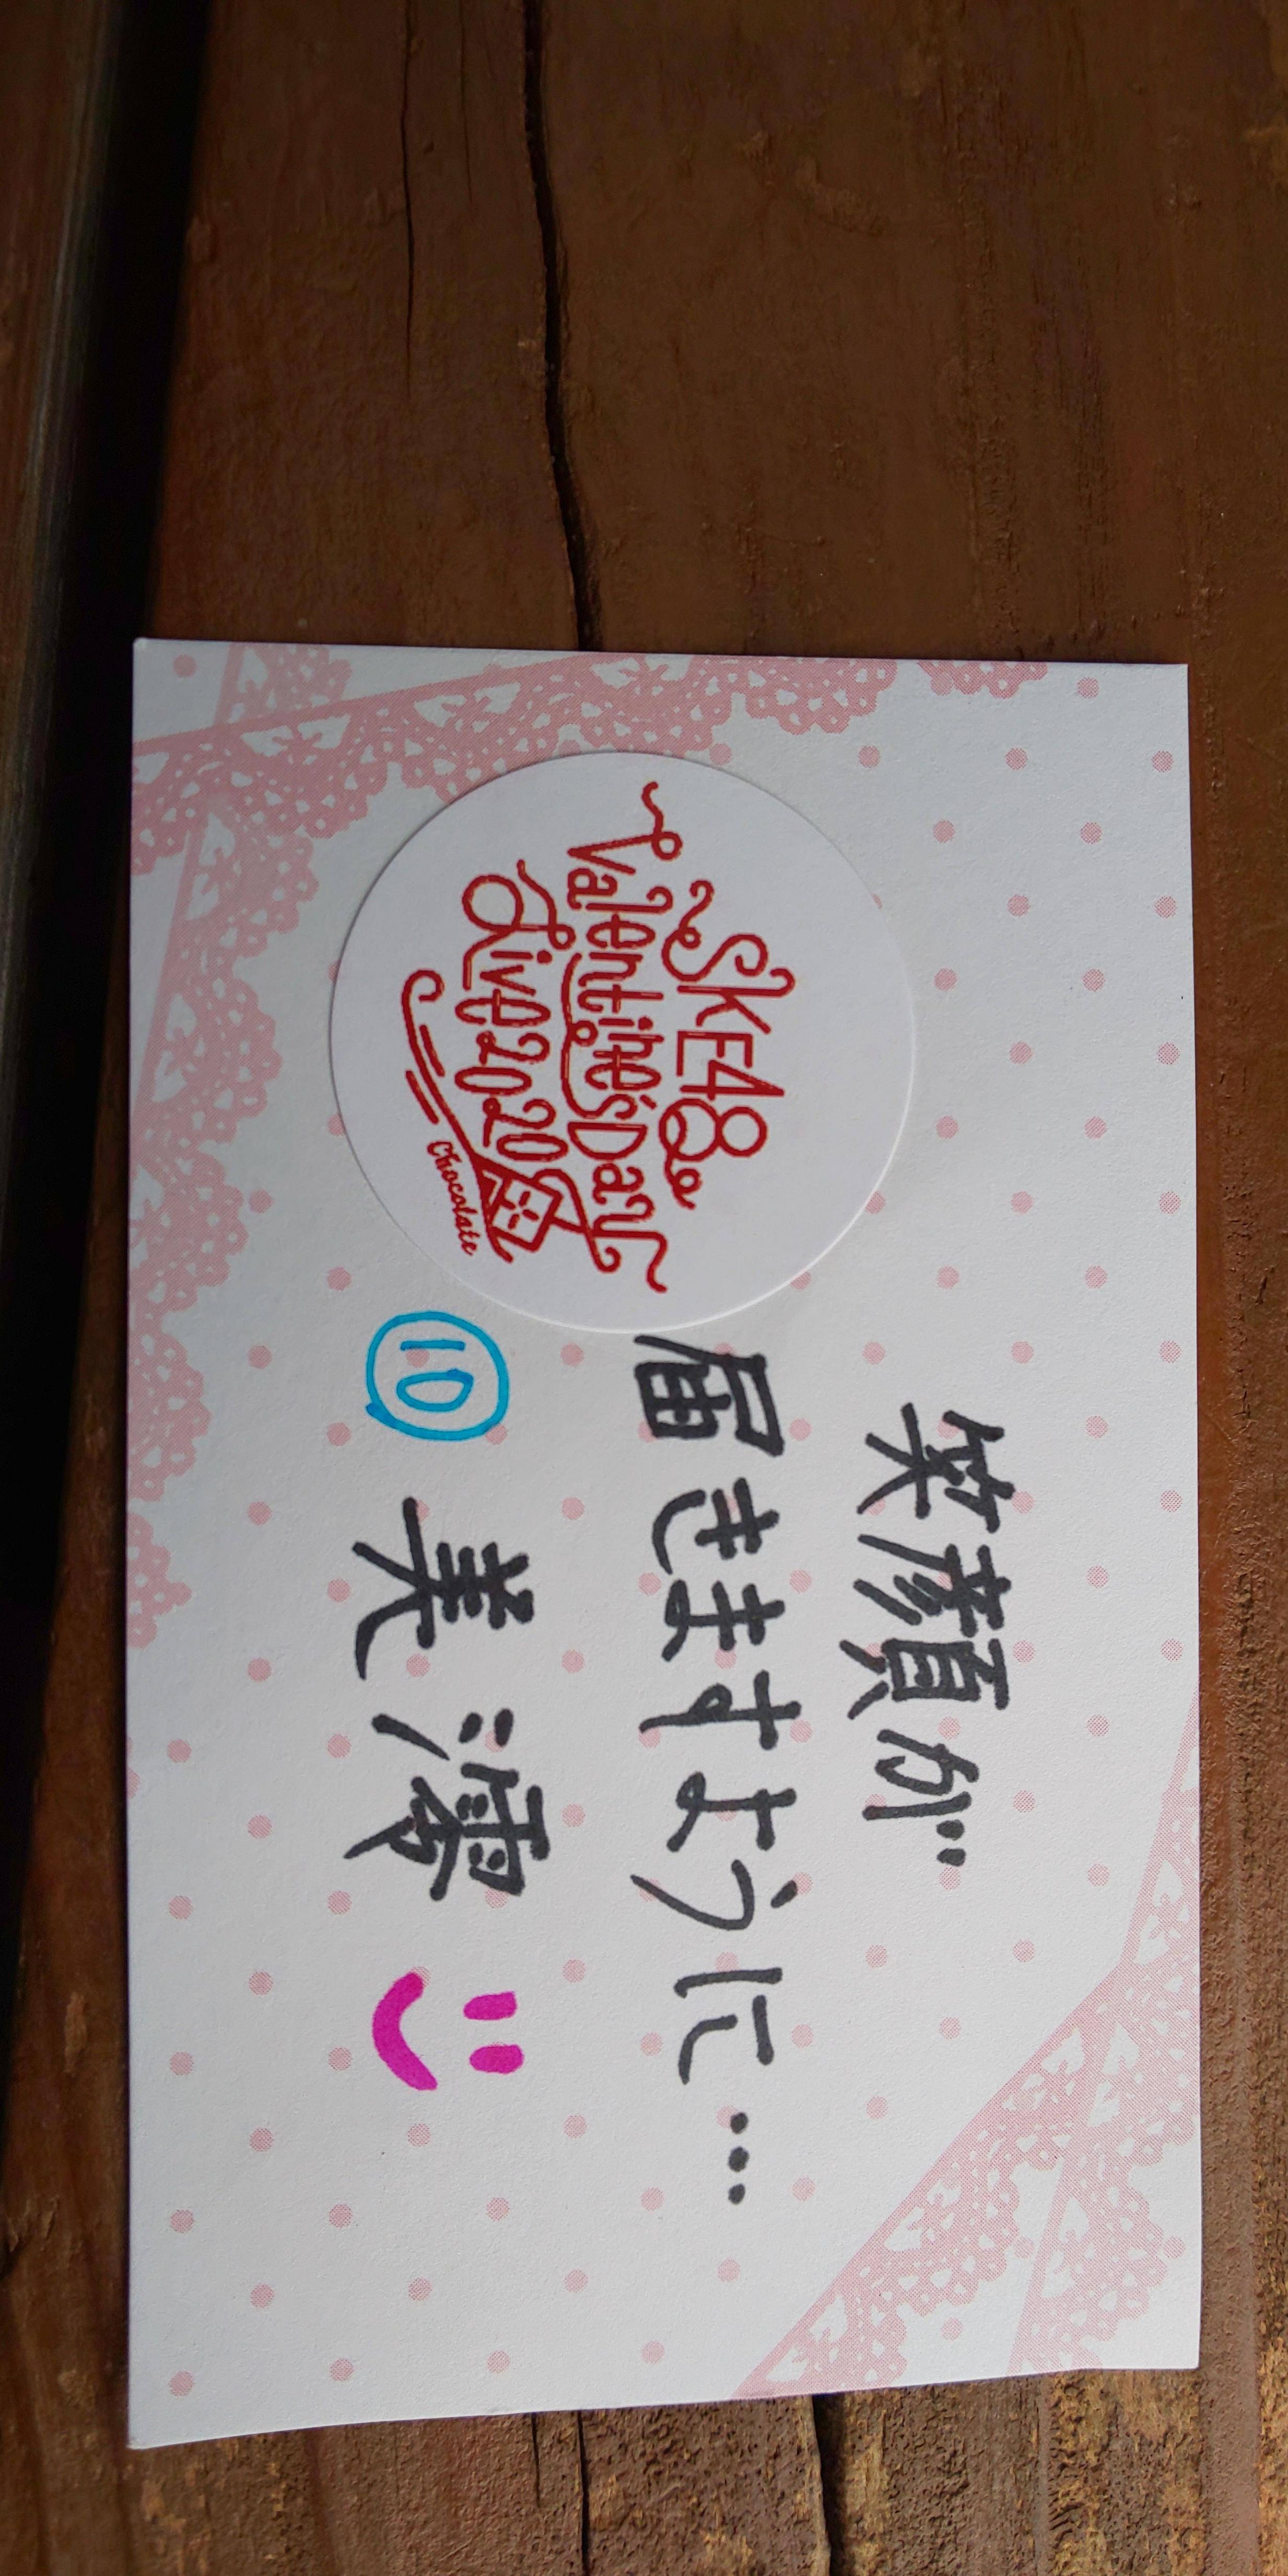 SKE48
Valentine's Day
Live 2020
Chocolate
笑顔が
届きますように…
⑩ 美澪